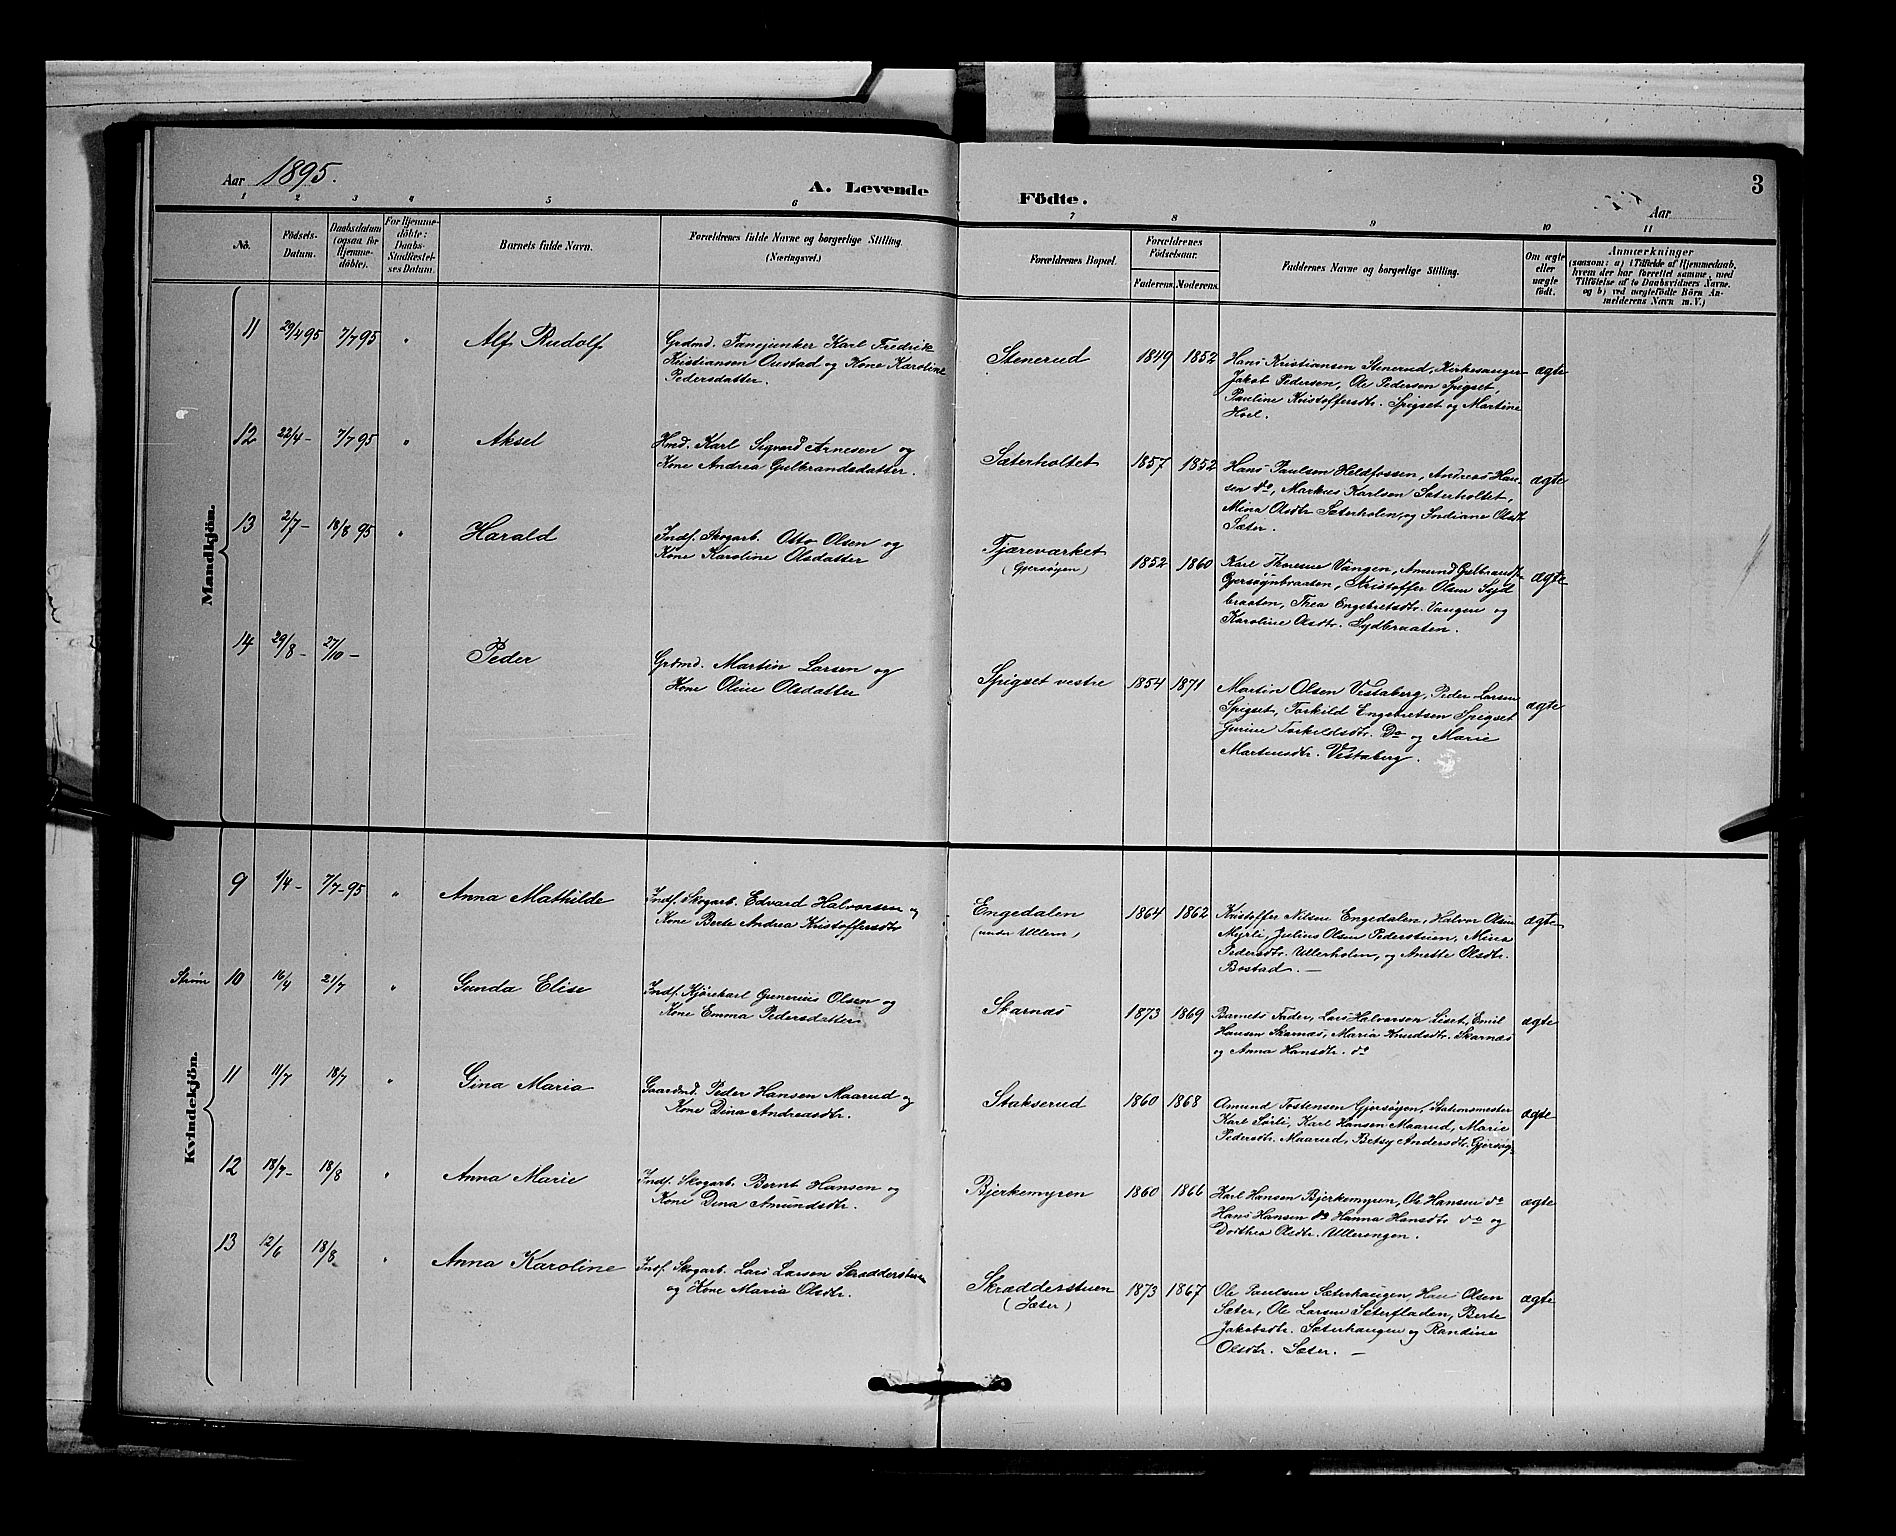 Aar 1895.
A. Levende Födte.
3
Aar
1 2 3 4 5 6 7 8 9 10 11
No.
Födsels-
Datum.
Daabsdatum
(ogsaa for
Hjemme-
döbte).
For Hjemme-
döbte:
Daabs-
Stadfæstel-
ses Datum.
Barnets fulde Navn.
Forældrenes fulde Navne og borgerlige Stilling
(Næringsvei.)
Forældrenes Bopæl.
Forældrenes
Födselsaar.
Faderens. Moderens.
Faddernes Navne og borgerlige Stilling.
Om ægte
eller
uægte
födt.
Anmærkninger
(saasom: a) i Tilfælde af Hjemmedaab,
hvem der har forrettet samme, med
Tilföielse af to Daabsvidners Navne.
og b) ved uægtefödte Börn An-
melderens Navn m. V.)
Mandkjön.
11 29/4 95 7/7 95 " Alf Rudolf
Grdmd. Fanejunker Karl Fredrik
Kristiansen Oustad og Kone Karoline
Pedersdatter.
Stenerud 1849 1852
Hans Kristiansen Stenerud, Kirkesanger
Jakob Pedersen, Ole Pedersen Spigset,
Pauline Kristoffersdtr. Spigset og Martine
Hoel.
ægte
12 22/4 - 7/7 95 " Aksel
Hmd. Karl Sigvard Arnesen og
Kone Andrea Gulbrandsdatter.
Sæterholtet 1857 1852
Hans Paulsen Heldfossen, Andreas Han-
sen do, Markus Karlsen Sæterholtet,
Mina Olsdtr Sæterholen, og Indiane Olsdtr
Sæter.
ægte
13 2/7 - 18/8 95 " Harald
Indf. Skogarb. Otto Olsen og
Kone Karoline Olsdatter
Tjæreværket
(Gjersøyen)
1852 1860
Karl Thoresen Vangen, Amund Gulbrands.
Gjersøynbraaten, Kristoffer Olsen Syd
braaten, Thea Engebretsdtr. Vangen og
Karoline Olsdtr. Sydbraaten.
ægte
14 29/8 - 27/10 - Peder
Grdmd. Martin Larsen og
Kone Oline Olsdatter
Spigset vestre 1854 1871
Martin Olsen Vestaberg, Peder Larsen
Spigset, Torkild Engebretsen Spigset
Gurine Torkildsdtr. Do og Marie
Martinsdtr. Vestaberg.
ægte
Kvindekjön.
9 1/4 - 7/7 - 95 " Anna Mathilde
Indf. Skogarb. Edvard Halvorsen og
Kone Berte Andrea Kristoffersdtr
Engedalen
(under Ullern)
1864 1862
Kristoffer Nilsen Engedalen, Halvor Olsen
Myrli, Julius Olsen Pederstuen, Mina
Pedersdtr. Ullerholen, og Anette Olsdtr.
Bostad. -
ægte
Strøm 10 16/4 21/7 " Gunda Elise
Indf. Kjørekarl Gunerius Olsen og
Kone Emma Pedersdatter
Skarnæs 1873 1869
Barnets Fader, Lars Halvorsen Liset, Emil
Hansen Skarnæs, Maria Knudsdtr. Skarnæs
og Anna Hansdtr. do
ægte
11 11/7 18/7 " Gina Maria
Gaardmd. Peder Hansen Maarud og
Kone Dina Andreasdtr.
Stakserud 1860 1868
Amund Tostensen Gjersøyen, Stationsmester
Karl Sørli, Karl Hansen Maarud, Marie
Pedersdtr. Maarud, Betsy Andersdtr. Gjersøg
ægte
12 18/7 - 18/8 " Anna Marie
Indf. Skogarb. Bernt Hansen og
Kone Dina Amundsdtr.
Bjerkemyren 1860 1866
Karl Hansen Bjerkemyren, Ole Hansen do
Hans Hansen do Hanna Hansdtr do og
Dorthea Olsdtr. Ullerengen.
ægte
13 12/6 18/8 " Anna Karoline
Indf. Skogarb. Lars Larsen Skrædderstuen
og Kone Maria Olsdtr.
Skrædderstuen
(Sæter)
1873 1867
Ole Paulsen Sæterhaugen, Hans Olsen
Sæter, Ole Larsen Sæterfladen, Berte
Jakobsdtr. Sæterhaugen og Randine
Olsdtr. Sæter. -
ægte